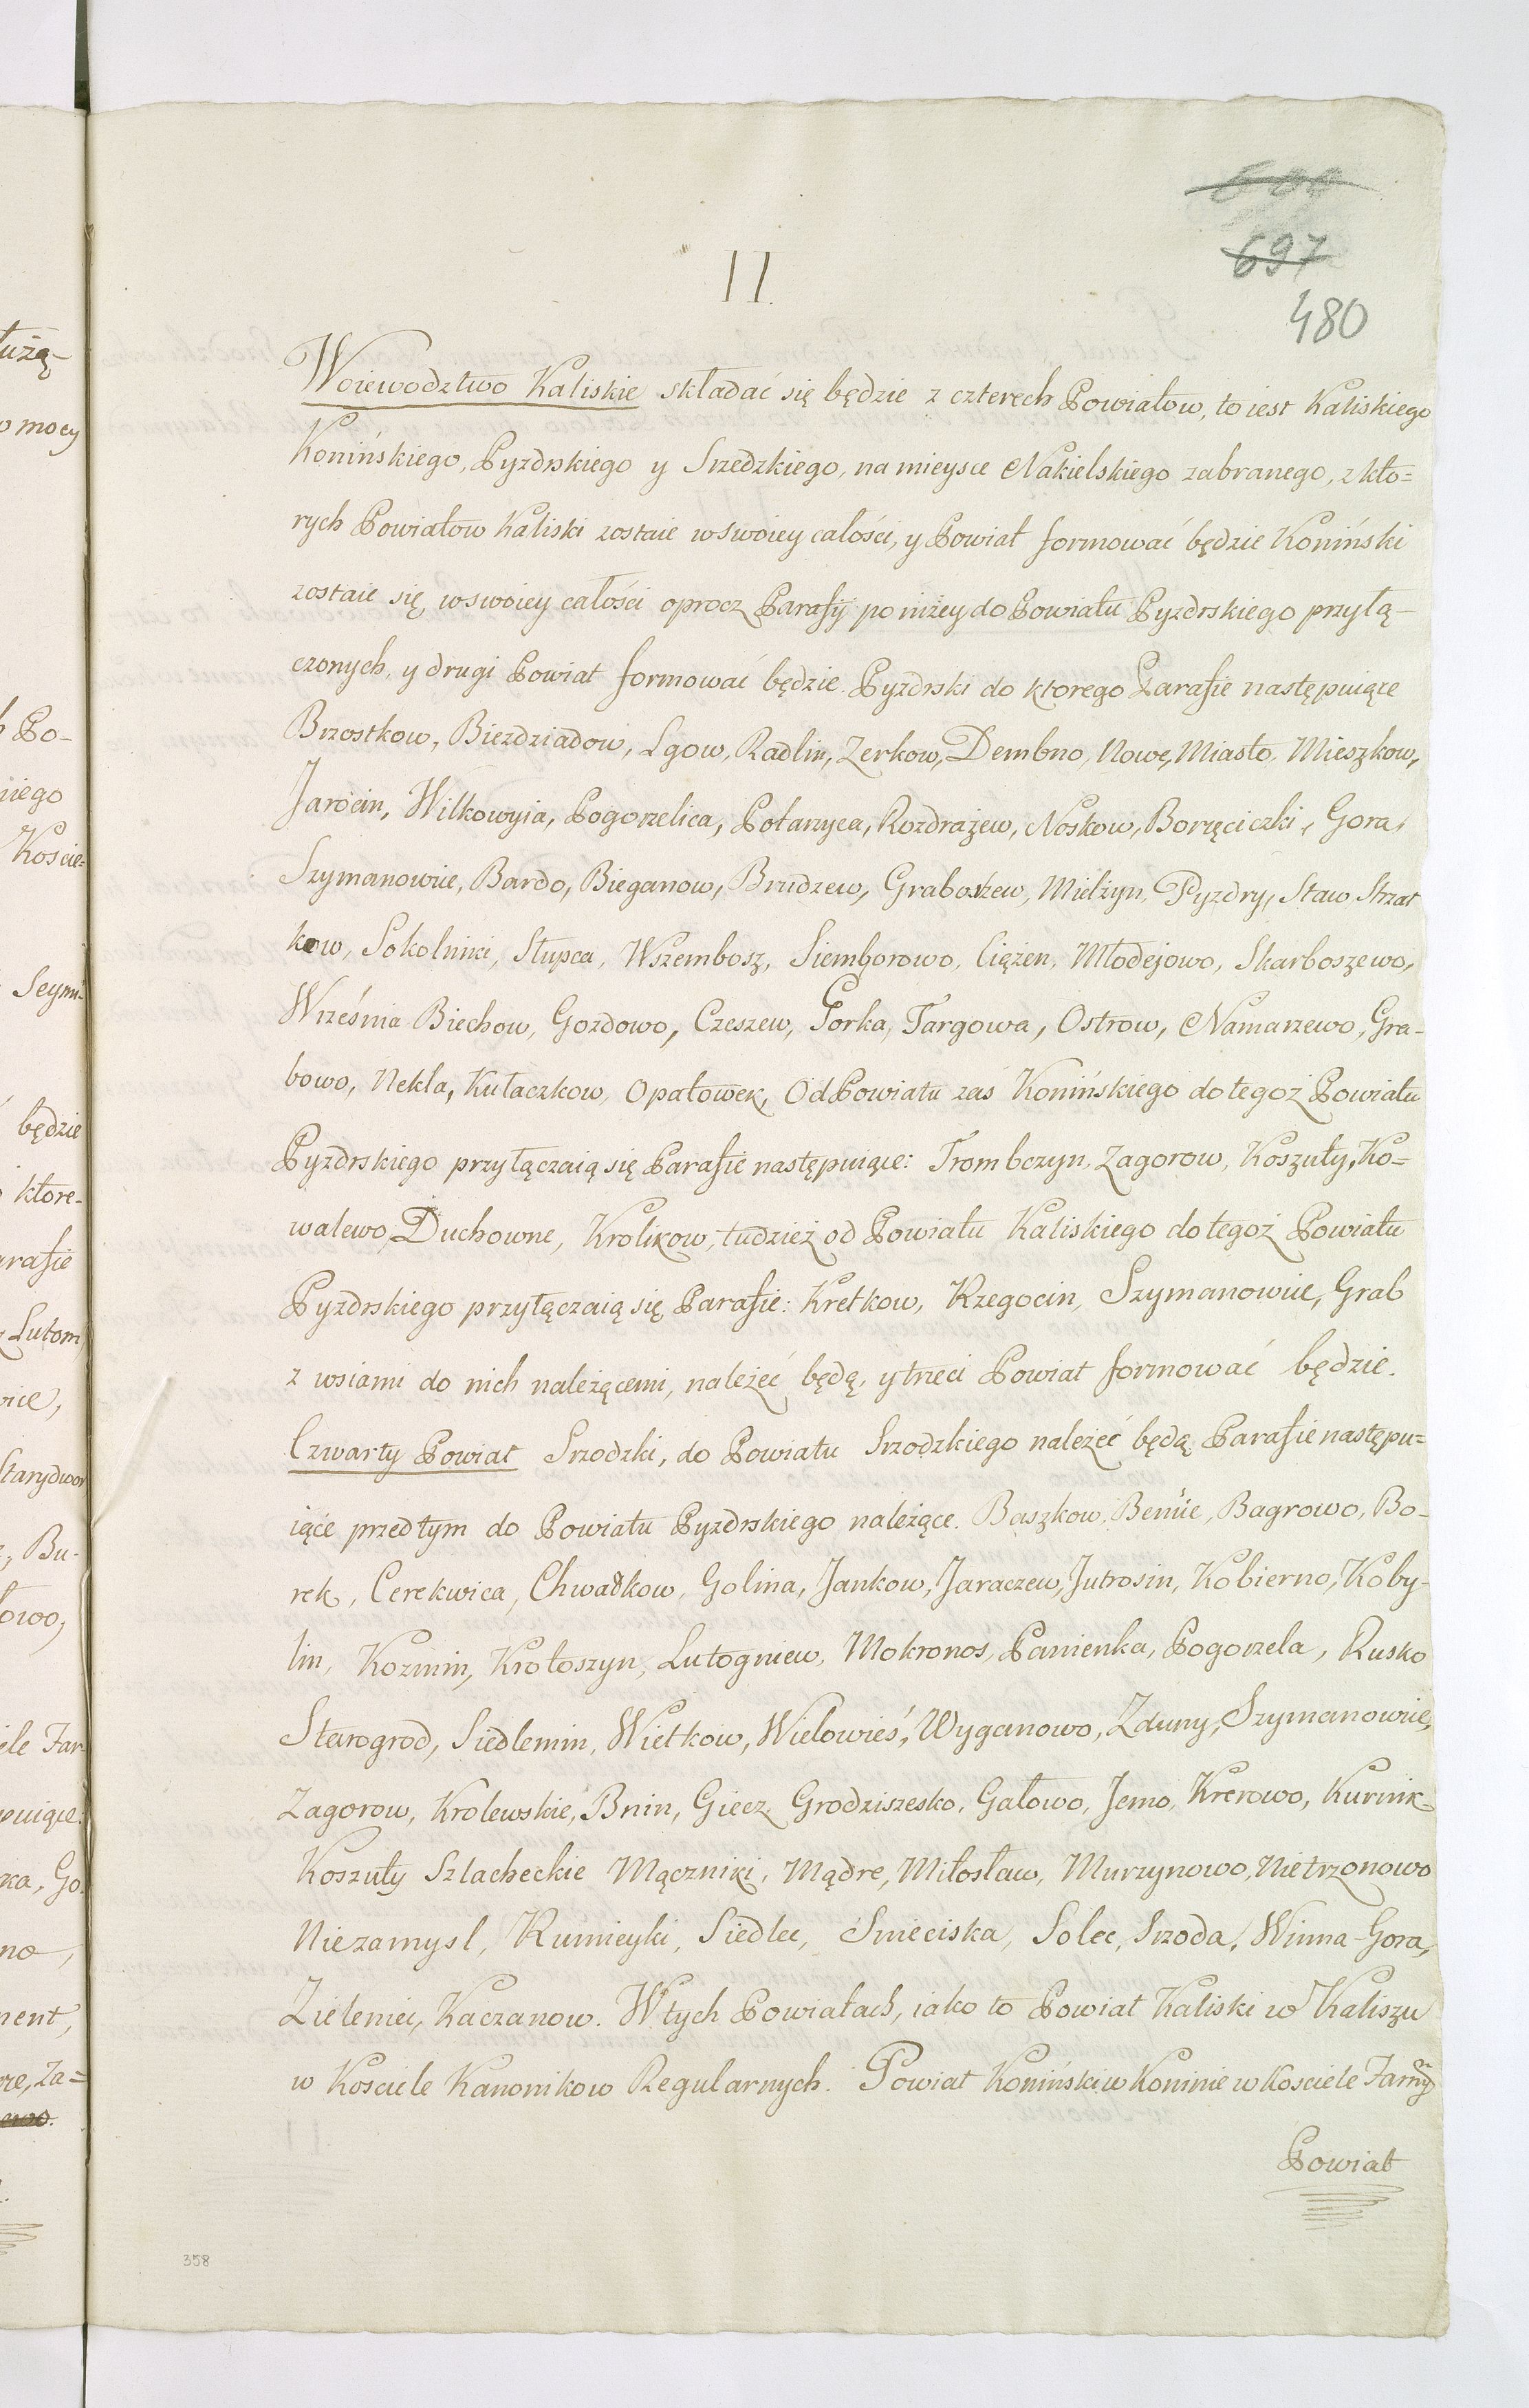 600
697
480
II.
Woiewodztwo Kaliskie składać się będzie z czterech Powiatow, to iest Kaliskiego
Konińskiego, Pyzdrskiego y Srzedzkiego, na mieysce Nakielskiego zabranego, z kto=
rych Powiatow Kaliski zostaie w swoiey całości, y Powiat formować będzie Koniński
zostaie się w swoiey całości oprocz Parafij poniżey do Powiatu Pyzdrskiego przyłą-
czonych, y drugi Powiat formować będzie. Pyzdrski do ktorego Parafie następuiące
Brzostkow, Biezdziadow, Lgow, Radlin, Zerkow, Dembno, Nowe, Miasto, Mieszkow,
Jarocin, Wilkowyia, Pogorzelica, Potarzyca, Rozdrażew, Noskow, Borzęciczki, Gora,
Szymanowice, Bardo, Bieganow, Brudzew, Graboszew, Mielżyn, Pyzdry, Staw Strzał
kow, Sokolniki, Słupca, Wszembosz, Siemborowo, Ciążen, Młodejowo, Skarboszewo,
Września Biechow, Gozdowo, Czeszew, Gorka, Targowa, Ostrow, Namarzewo, Gra-
bowo, Nekla, Kułaczkow, Opatowek, Od Powiatu zaś Konińskiego do tegoż Powiatu
Pyzdrskiego przyłączaią się Parafie następuiące: Trombczyn, Zagorow, Koszuty, Ko=
walewo, Duchowne, Krolikow, tudzież od Powiatu Kaliskiego do tegoż Powiatu
Pyzdrskiego przyłączaią się Parafie: Kretkow, Rzegocin, Szymanowice, Grab
z wsiami do nich należącemi, należeć będą, y trzeci Powiat formować będzie.
Czwarty Powiat Srzodzki, do Powiatu Srzodzkiego należeć będą Parafie następu=
iące przedtym do Powiatu Pyzdrskiego należące. Baszkow, Benice, Bagrowo, Bo-
rek, Cerekwica, Chwałkow, Golina, Jankow, Jaraczew, Jutrosin, Kobierno, Koby-
lin, Kozmin, Krotoszyn, Lutogniew, Mokronos, Panienka, Pogorzela, Rusko
Starogrod, Siedlemin, Wielkow, Wielowieś, Wyganowo, Zduny, Szymanowice,
Zagorow, Krolewskie, Bnin, Giecz, Grodziszesko, Gałowo, Jemo, Krerowo, Kurnik
Koszuty Szlacheckie Mączniki, Mądre, Miłosław, Murzynowo, Nietrzonowo
Niezamysl, Rumieyki, Siedlec, Snieciska, Solec, Srzoda, Winna-Gora,
Zieleniec, Kaczanow. W tych Powiatach, iako to Powiat Kaliski w Kaliszu
w Kosciele Kanonikow Regularnych. Powiat Koniński w Koninie w Kosciele Farny
Powiat
358